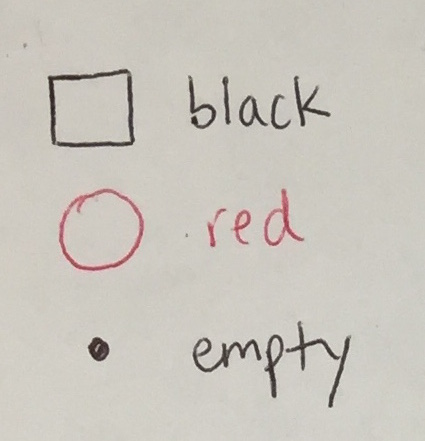 black
red
empty